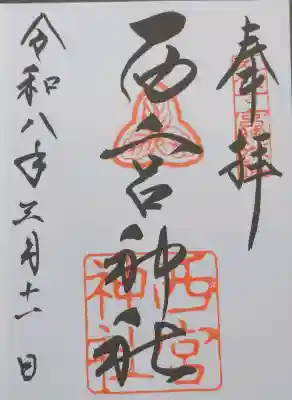 奉拝
西宮神社
西宮神社
令和八年三月十一日